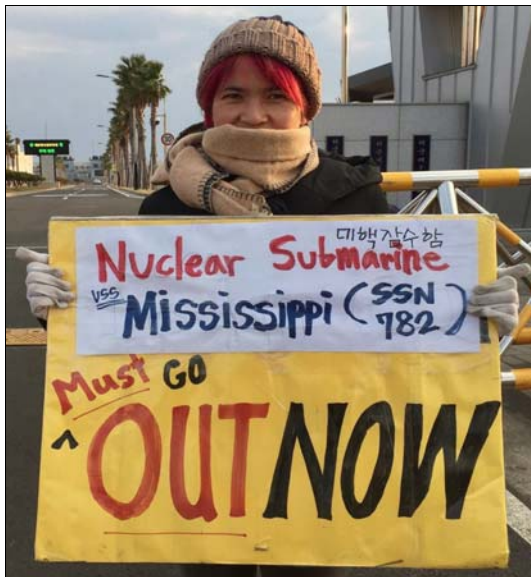 미핵잠수함
Nuclear Submarine
USS Mississippi (SSN 782)
Must GO
^ OUT NOW